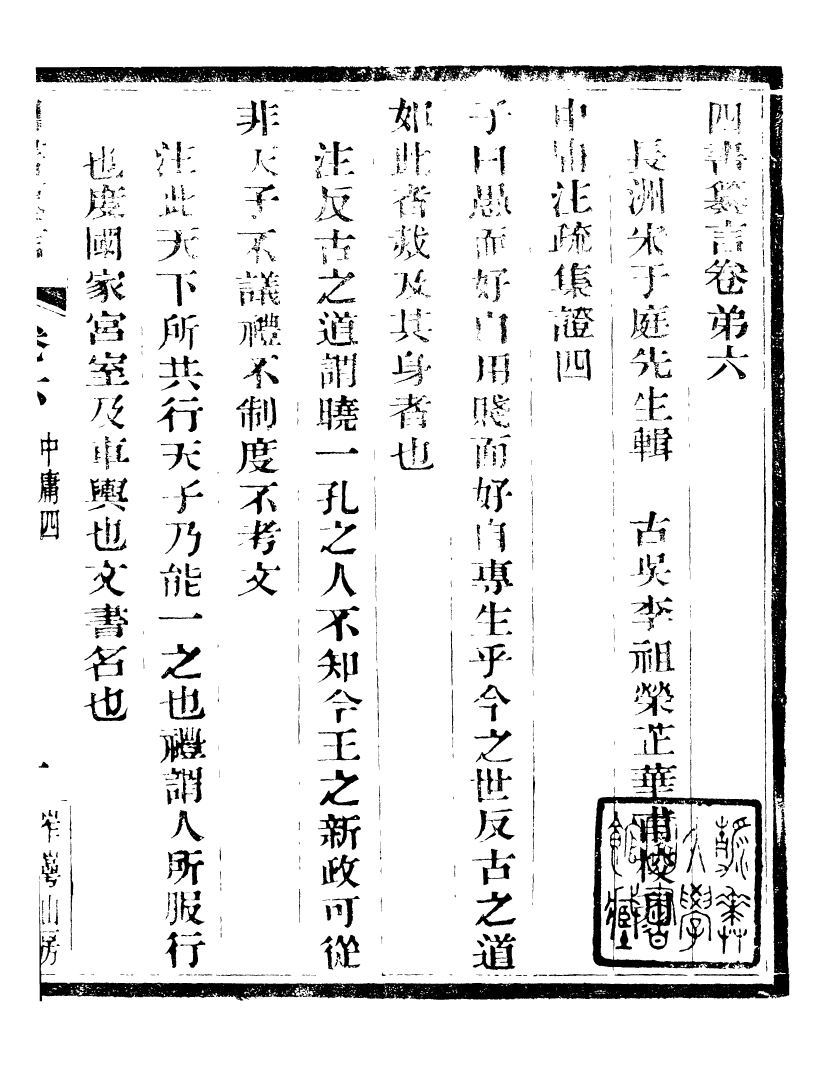 四書纂言卷弟六
長洲宋于庭先生輯　古吳李祖榮芷華甫校
中庸注疏集證四
子曰愚而好自用賤而好自專生乎今之世反古之道
如此者烖及其身者也
注反古之道謂曉一孔之人不知今王之新政可從
非天子不議禮不制度不考文
注此天下所共行天子乃能一之也禮謂人所服行
也度國家宮室及車輿也文書名也
四書纂言　卷六　中庸四　一　山房